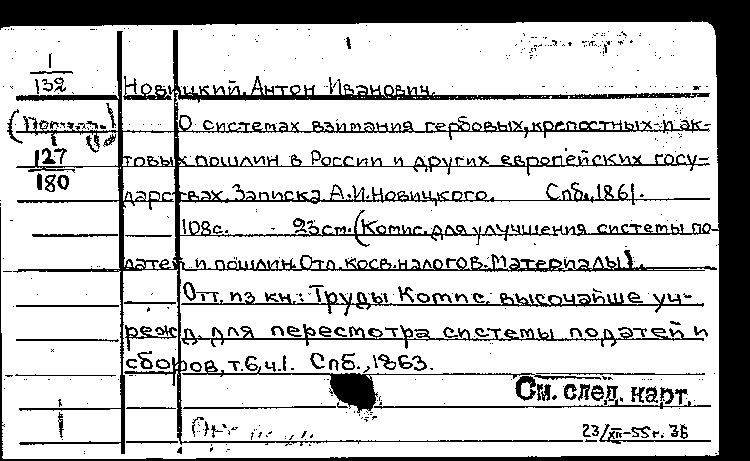 1
1
132
Новицкий, Антон Иванович.
О системах взимания гербовых, крепостных и ак-
127
товых пошлин в России и других европейских госу-
180
дарствах. Записка А.И.Новицкого. Спб., 1861.
108с. 23см. (Комис. для улучшения системы по-
датей и пошлин. Отд. косв. налогов. Материалы).
Отт. из кн.: Труды Комис. высочайше уч-
режд. для пересмотра системы податей и
сборов, т.6, ч.1. Спб., 1863.
См. след. карт.
23/XII-55г. ЗБ